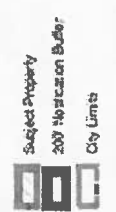 Subject Property
200' Notification Buffer
City Limits